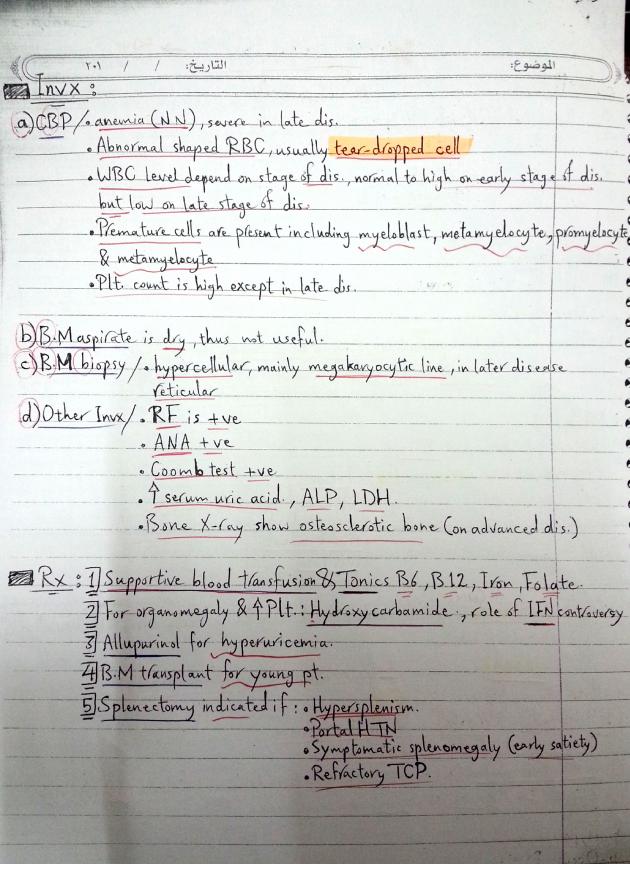 الموضوع: التاريخ: / / ٢٠١
Invx :
a) CBP/ • anemia (NN), severe in late dis.
• Abnormal shaped RBC, usually tear-dropped cell
• WBC level depend on stage of dis., normal to high on early stage of dis.
but low on late stage of dis.
• Premature cells are present including myeloblast, metamyelocyte, promyelocyte
& metamyelocyte
• Plt. count is high except in late dis.
b) B.M aspirate is dry, thus not useful.
c) B.M biopsy / • hypercellular, mainly megakaryocytic line, in later disease
reticular
d) Other Invx / • RF is +ve
• ANA +ve
• Coomb test +ve
• ↑ serum uric acid, ALP, LDH.
• Bone X-ray show osteosclerotic bone (on advanced dis.)
Rx : 1] Supportive blood transfusion & Tonics B6, B12, Iron, Folate.
2] For organomegaly & ↑Plt. : Hydroxycarbamide., role of IFN controversy
3] Allupurinol for hyperuricemia.
4] B.M transplant for young pt.
5] Splenectomy indicated if : • Hypersplenism.
• Portal HTN
• Symptomatic splenomegaly (early satiety)
• Refractory TCP.